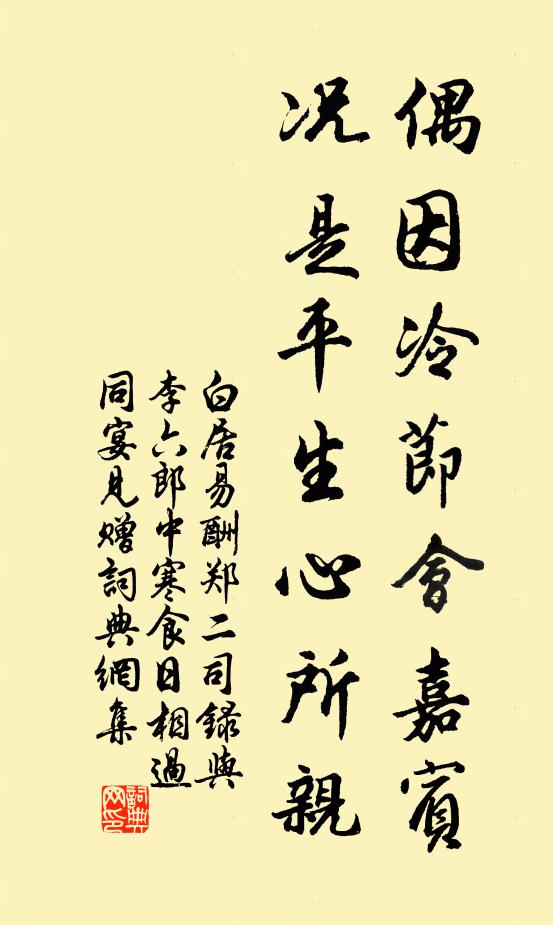 偶因冷節會嘉賓
况是平生心所親
白居易酬郑二司録與
李六郎中寒食日相過
同宴見贈詞典網集
詞典
网印